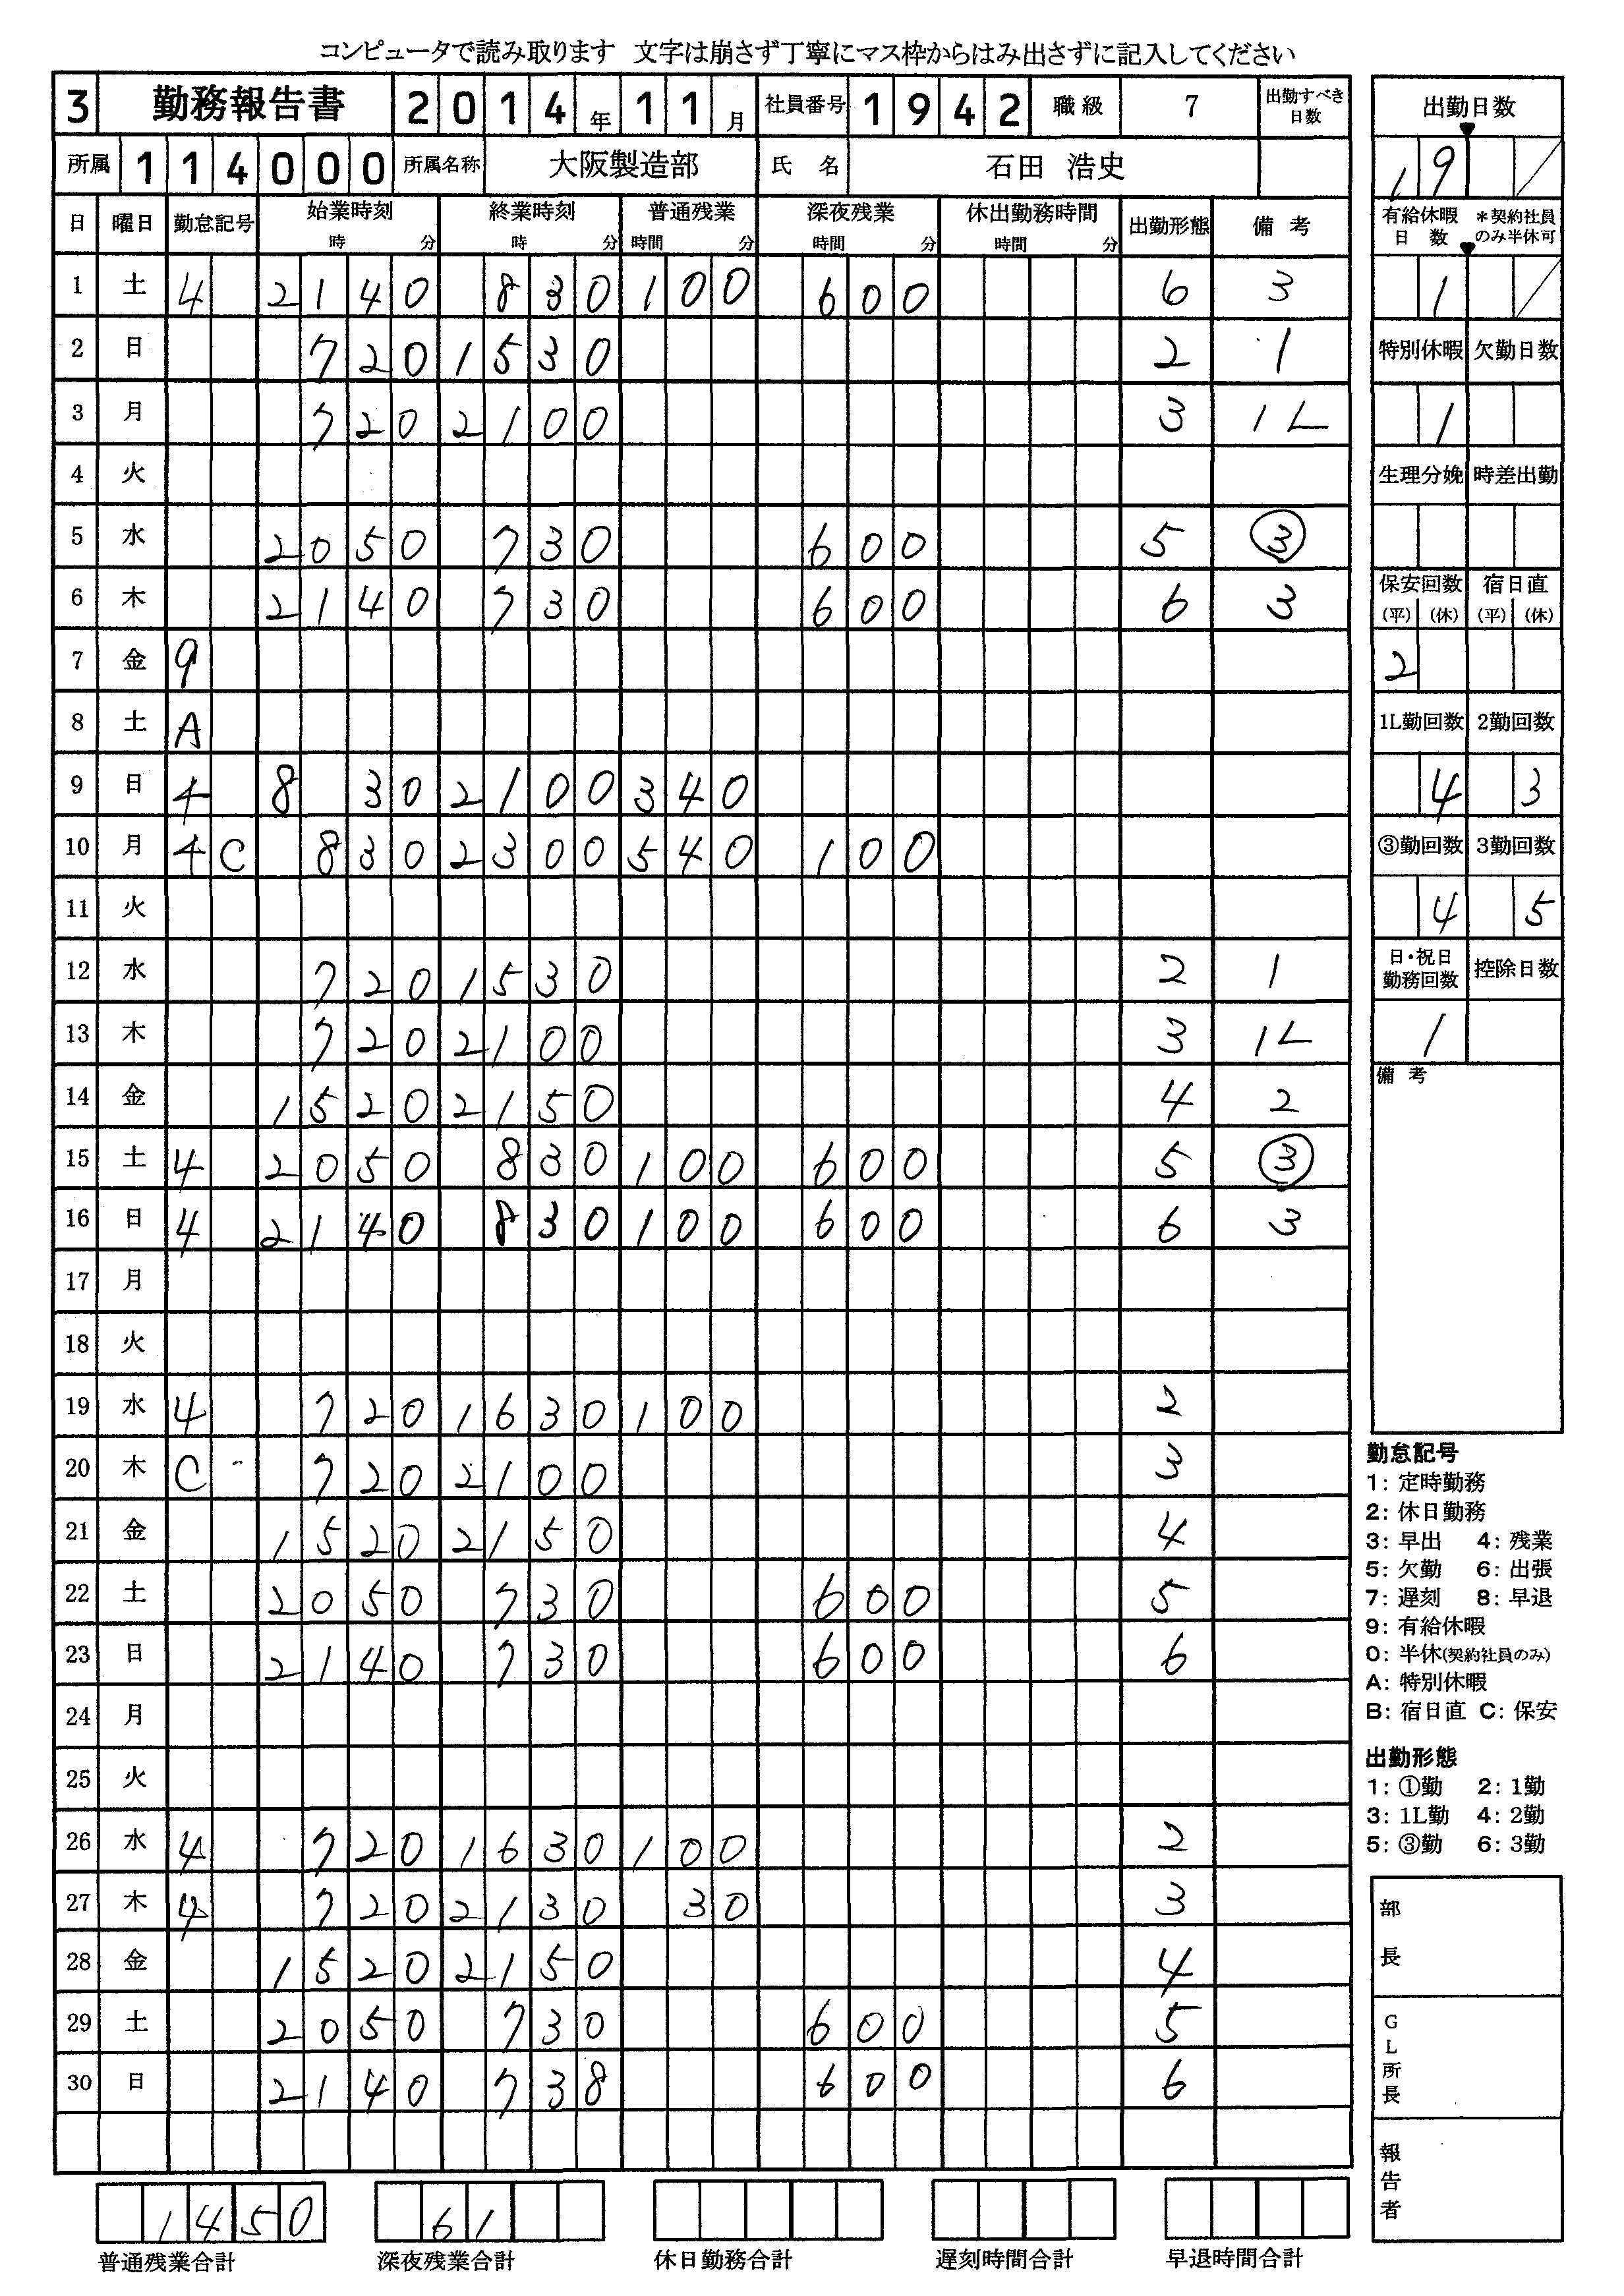 コンピュータで読み取ります 文字は崩さず丁寧にマス枠からはみ出さずに記入してください
3 勤務報告書 2014年11月 社員番号 1942 職級 7 出勤すべき日数
所属 114000 所属名称 大阪製造部 氏名 石田 浩史
日 曜日 勤怠記号 始業時刻 時 分 終業時刻 時 分 普通残業 時間 分 深夜残業 時間 分 休出勤務時間 時間 分 出勤形態 備考
1 土 4 2140 830 100 600 6 3
2 日 720 1530 2 1
3 月 720 2100 3 1L
4 火
5 水 2050 730 600 5 ③
6 木 2140 730 600 6 3
7 金 9
8 土 A
9 日 4 8 30 2100 340
10 月 4C 830 2300 540 100
11 火
12 水 720 1530 2 1
13 木 720 2100 3 1L
14 金 1520 2150 4 2
15 土 4 2050 830 100 600 5 ③
16 日 4 2140 830 100 600 6 3
17 月
18 火
19 水 4 720 1630 100 2
20 木 C 720 2100 3
21 金 1520 2150 4
22 土 2050 730 600 5
23 日 2140 730 600 6
24 月
25 火
26 水 4 720 1630 100 2
27 木 4 720 2130 30 3
28 金 1520 2150 4
29 土 2050 730 600 5
30 日 2140 738 600 6
1450 61
普通残業合計 深夜残業合計 休日勤務合計 遅刻時間合計 早退時間合計
出勤日数
19
有給休暇日数 *契約社員のみ半休可
1
特別休暇 欠勤日数
1
生理分娩 時差出勤
保安回数 宿日直
(平) (休) (平) (休)
2
1L勤回数 2勤回数
4 3
③勤回数 3勤回数
4 5
日・祝日勤務回数 控除日数
1
備考
勤怠記号
1: 定時勤務
2: 休日勤務
3: 早出 4: 残業
5: 欠勤 6: 出張
7: 遅刻 8: 早退
9: 有給休暇
0: 半休(契約社員のみ)
A: 特別休暇
B: 宿日直 C: 保安
出勤形態
1: ①勤 2: 1勤
3: 1L勤 4: 2勤
5: ③勤 6: 3勤
部長
GL所長
報告者